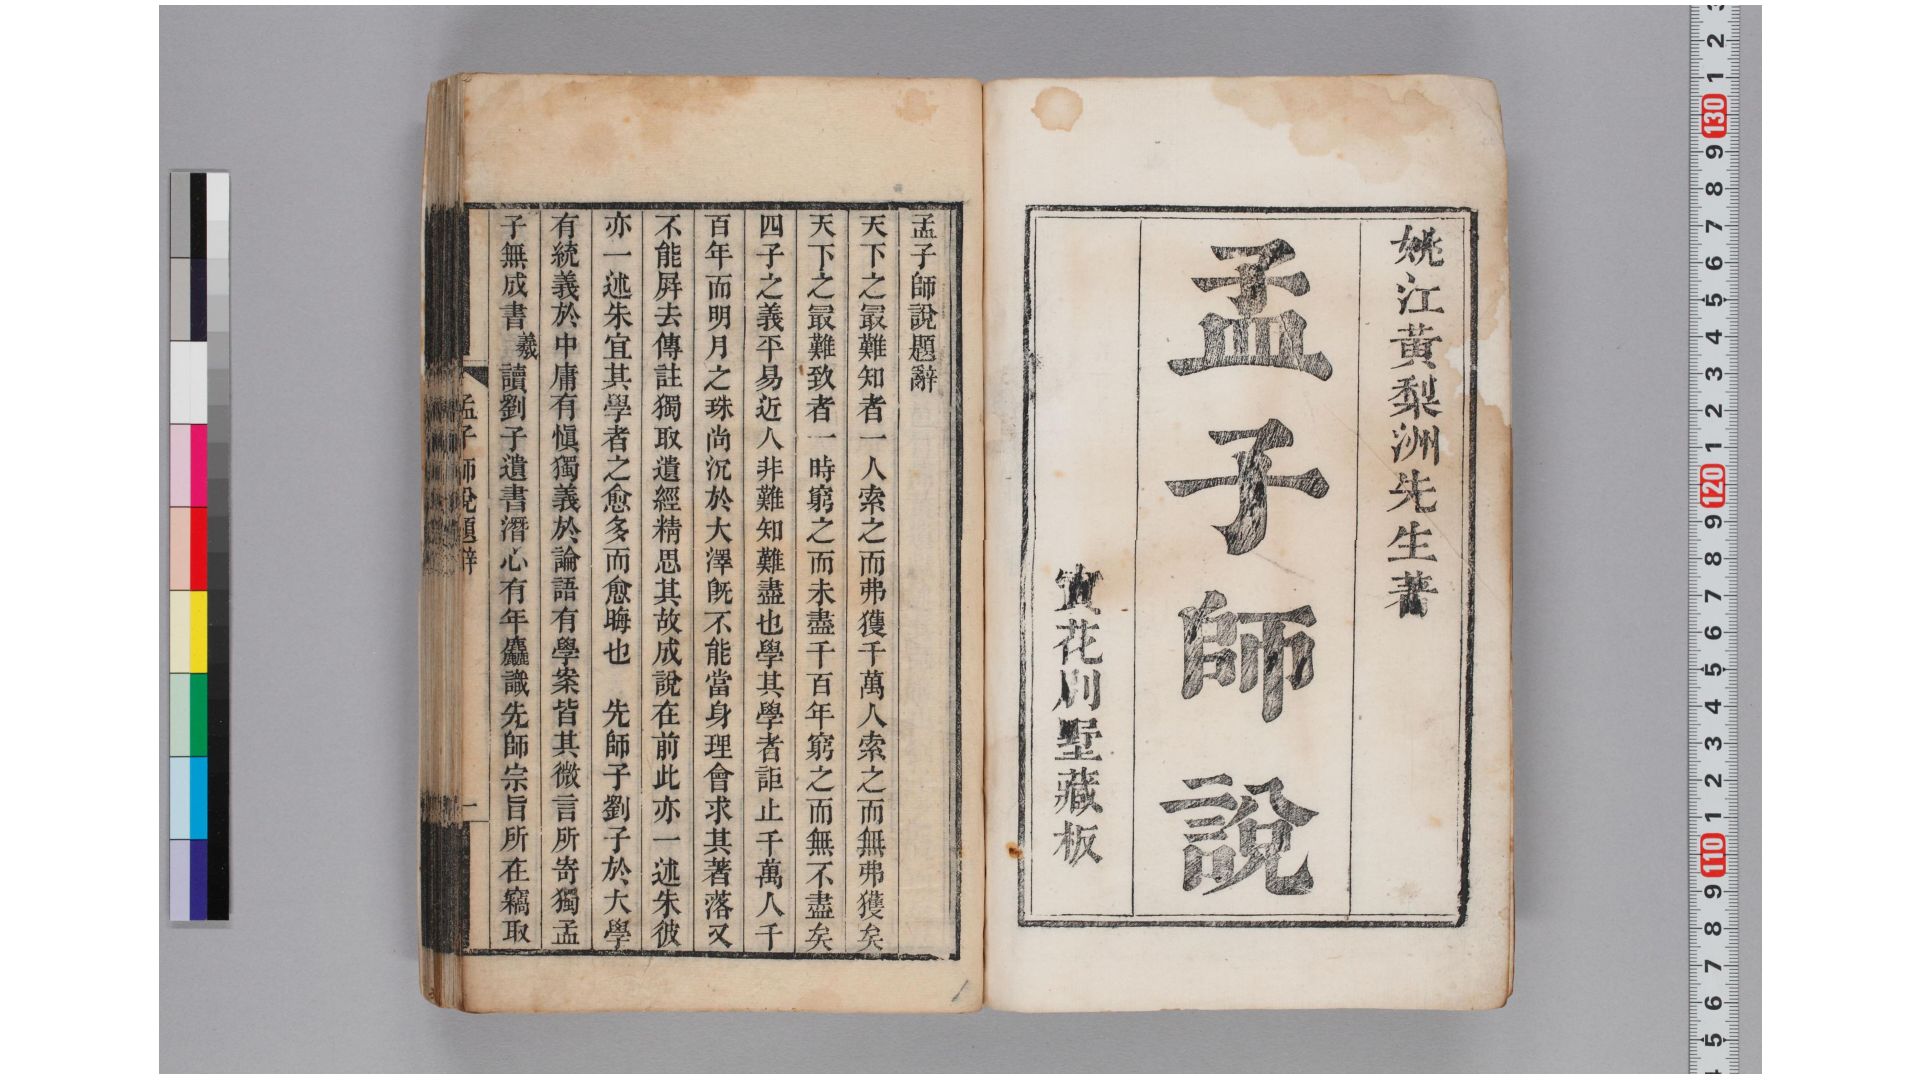 姚江黃梨洲先生著
孟子師說
宜花別墅藏板
孟子師說題辭
天下之冣難知者一人索之而弗獲千萬人索之而無弗獲矣
天下之冣難致者一時窮之而未盡千百年窮之而無不盡矣
四子之義平易近人非難知難盡也學其學者詎止千萬人千
百年而明月之珠尚沉於大澤旣不能當身理會求其著落又
不能屛去傳註獨取遺經精思其故成說在前此亦一述朱彼
亦一述朱宜其學者之愈多而愈晦也 先師子劉子於大學
有統義於中庸有愼獨義於論語有學案皆其微言所寄獨孟
子無成書 羲 讀劉子遺書潛心有年麤識先師宗旨所在竊取
孟子師說題辭 一
130
120
110